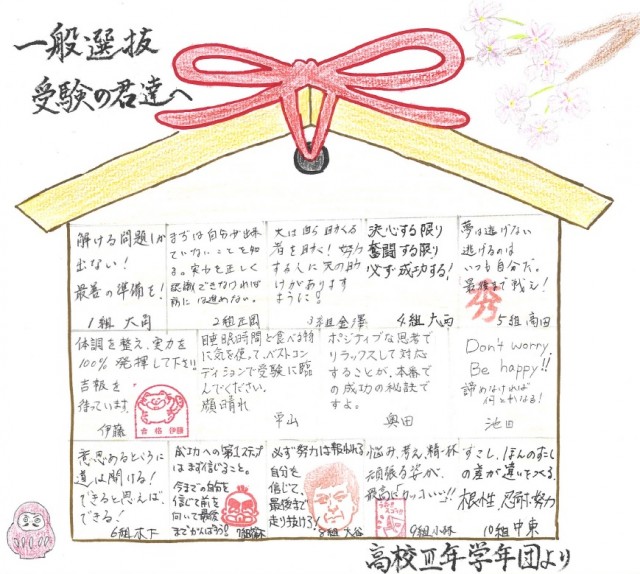 一般選抜
受験の君達へ
解ける問題しか
出ない！
最善の準備を！
1組 大角
まずは自分が出来
ていないことを知
る。実力を正しく
認識できなければ
前には進めない。
2組 正岡
天は自ら助くる
者を助く！努力
する人に天の助
けがあります
ように！
3組 金澤
決心する限り
奮闘する限り
必ず成功する！
4組 大西
夢は逃げない
逃げるのは
いつも自分だ。
最後まで戦え！
5組 高田
体調を整え、実力を
100％発揮して下さい
吉報を
待っています
合格 伊藤
伊藤
睡眠時間と食べる物
に気を使って、ベストコン
ディションで受験に臨
んでください。
頑晴れ
早山
ポジティブな思考で
リラックスして対応
することが、本番で
の成功の秘訣で
すよ。
奥田
Don't worry.
Be happy!!
諦めなければ
何とかなる！
池田
意思あるところに
道は開ける！
できると思えば、
できる！
6組 木下
成功への第1ステップ
はまず信じること。
今までの自分を
信じて前を
向いて最後
までがんばろう！
7組
必ず努力は報われる
自分を
信じて、
最後まで
走り抜けろ！
8組 大谷
悩み、考え、精一杯
頑張る姿が、
最高にカッコいい！！
9組 小林
すこし、ほんのすこし
の差が違いをつくる。
根性、忍耐、努力
10組 中東
高校Ⅲ年学年団より